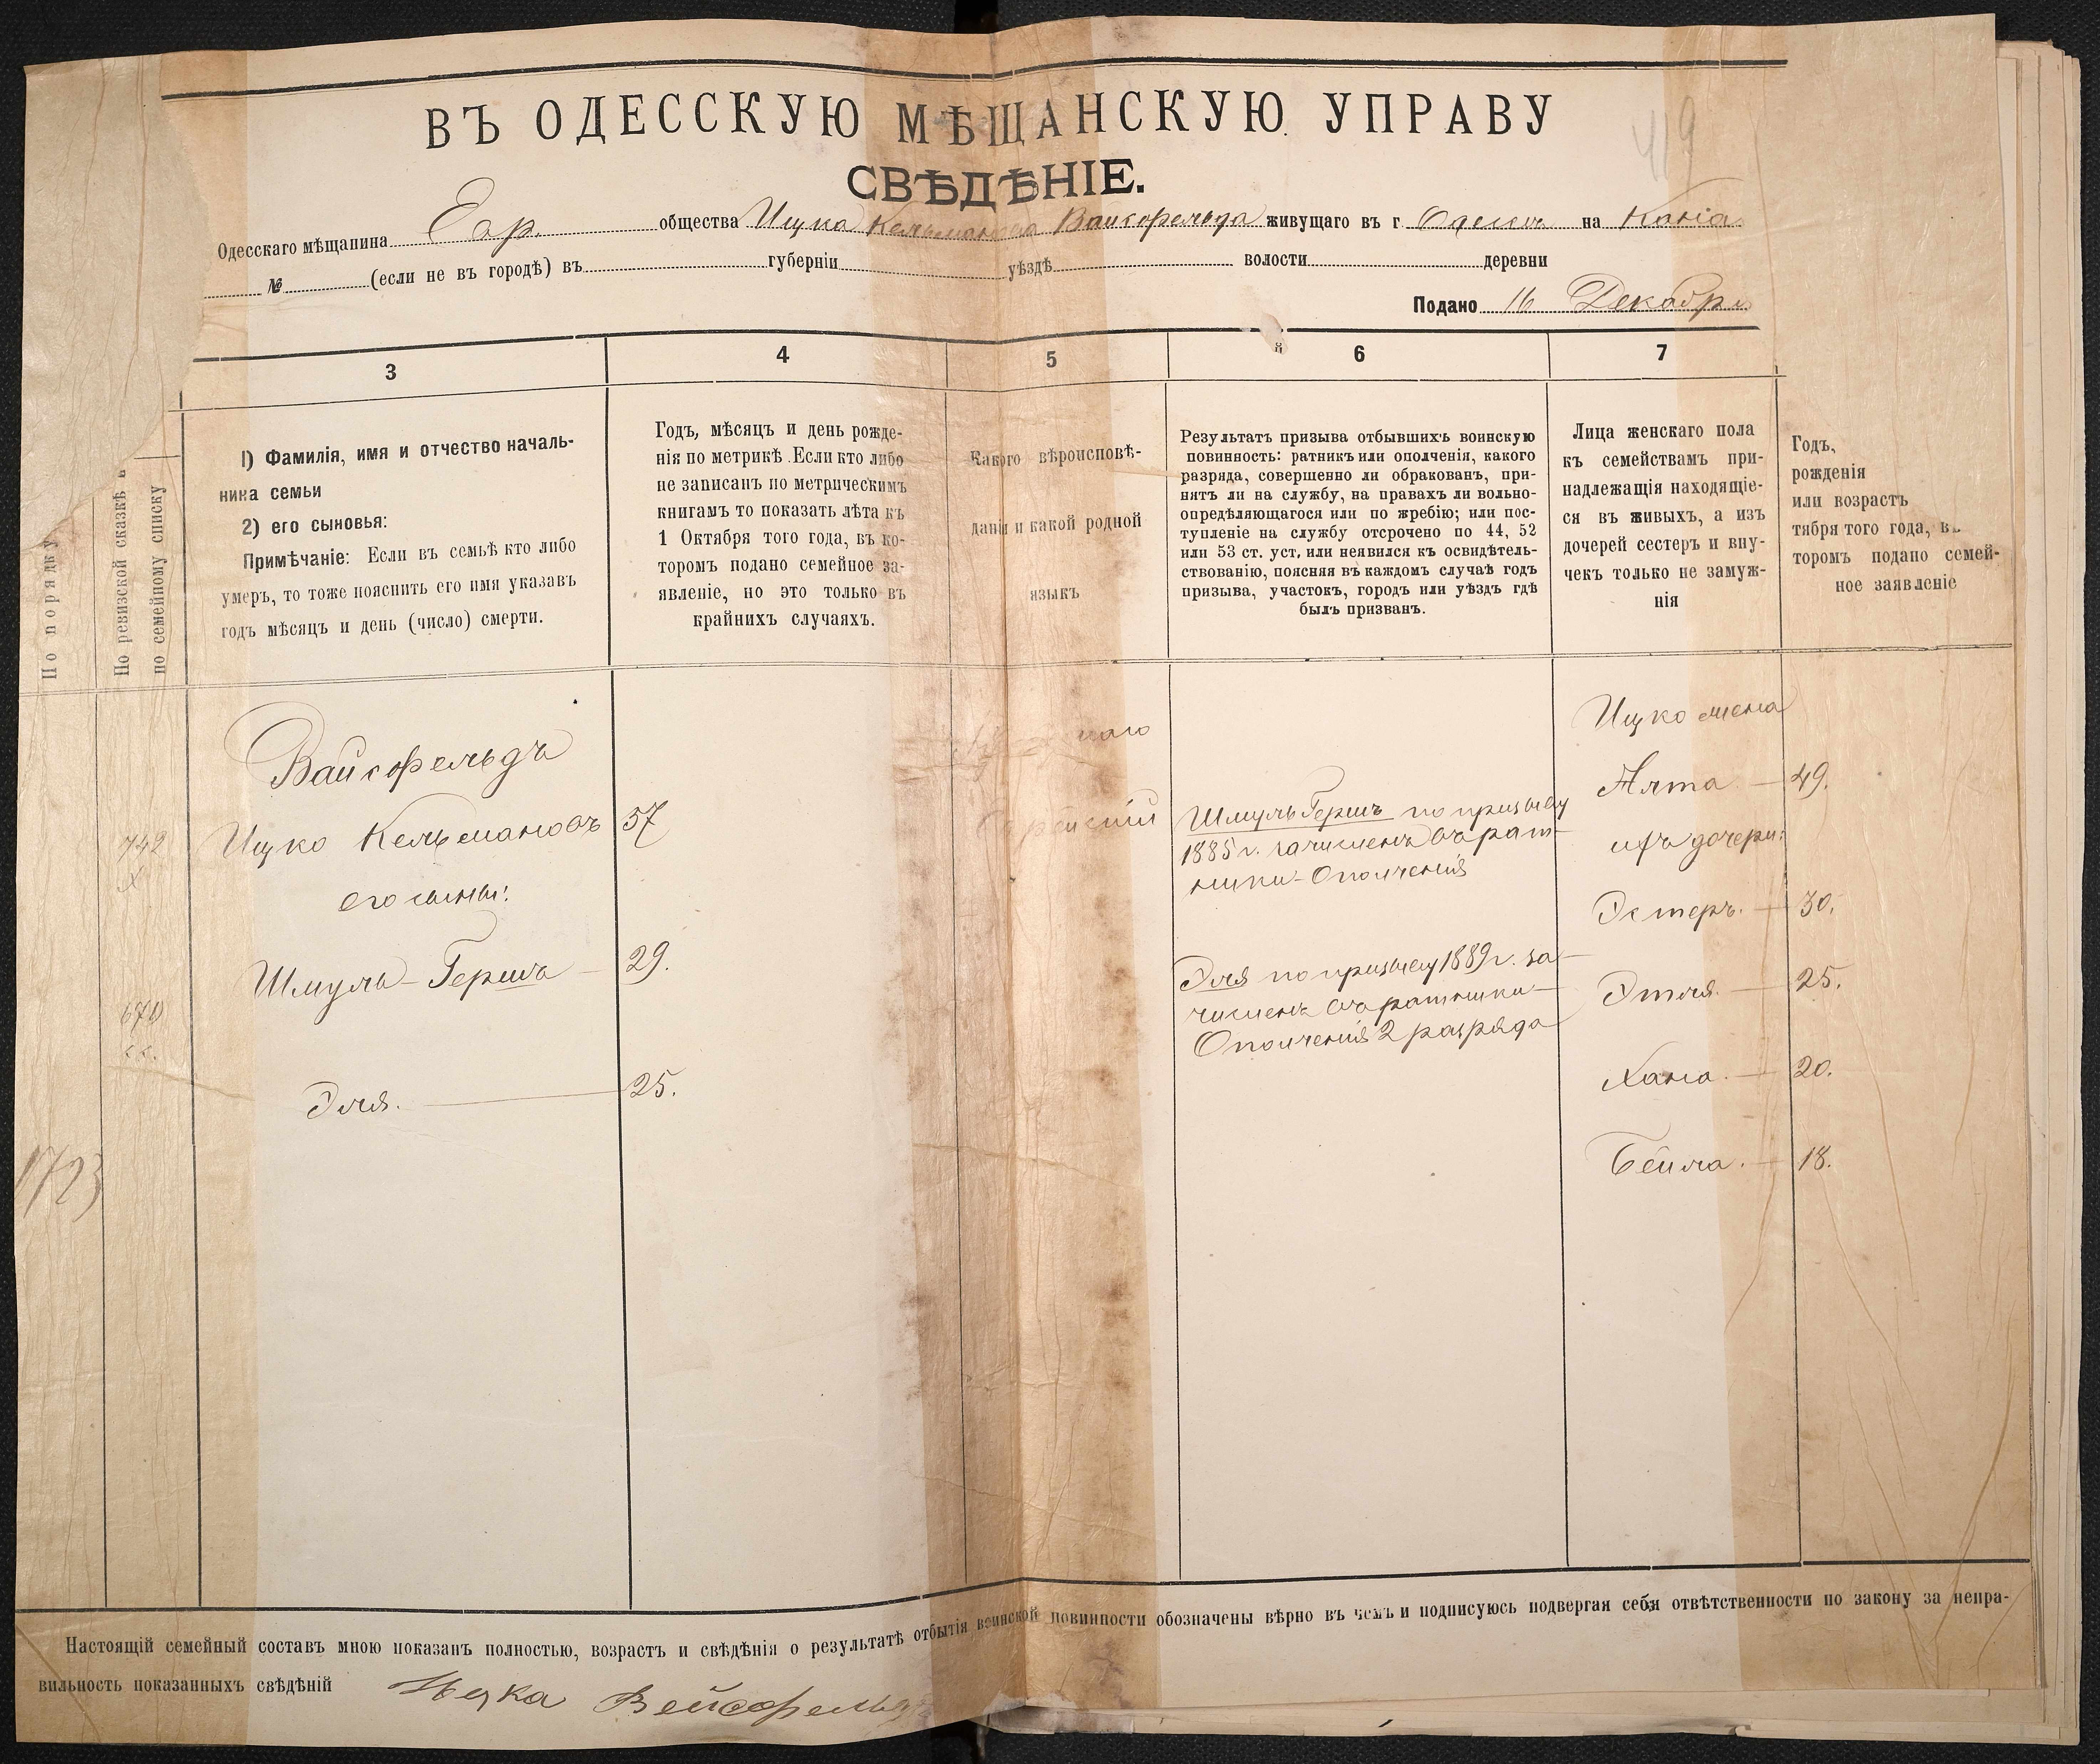 ВЪ ОДЕССКУЮ МѢЩАНСКУЮ УПРАВУ
419
СВѢДѢНІЕ.
Одесскаго мѣщанина Евр. общества Ицка Кельманова Вайсфельда живущаго въ г. Одессѣ на
№ (если не въ городѣ) въ губерніи уѣздѣ волости деревни
Подано 16 Декабря
3
4
5
6
7
По порядку
По ревизской сказкѣ
по семейному списку
1) Фамилія, имя и отчество началь-
ника семьи
2) его сыновья:
Примѣчаніе: Если въ семьѣ кто либо
умеръ, то тоже пояснить его имя указавъ
годъ мѣсяцъ и день (число) смерти.
Годъ, мѣсяцъ и день рожде-
нія по метрикѣ. Если кто либо
не записанъ по метрическимъ
книгамъ то показать лѣта къ
1 Октября того года, въ ко-
торомъ подано семейное за-
явленіе, но это только въ
крайнихъ случаяхъ.
Какого вѣроисповѣ-
данія и какой родной
языкъ
Результатъ призыва отбывшихъ воинскую
повинность: ратникъ или ополченія, какого
разряда, совершенно ли обракованъ, при-
нятъ ли на службу, на правахъ ли вольно-
опредѣляющагося или по жребію; или пос-
тупленіе на службу отсрочено по 44, 52
или 53 ст. уст, или неявился къ освидѣтель-
ствованію, поясняя въ каждомъ случаѣ годъ
призыва, участокъ, городъ или уѣздъ гдѣ
былъ призванъ.
Лица женскаго пола
къ семействамъ при-
надлежащія находящіе-
ся въ живыхъ, а изъ
дочерей сестеръ и вну-
чекъ только не замуж-
нія
Годъ,
рожденія
или возрастъ
тября того года, въ
торомъ подано семей-
ное заявленіе
Вайсфельдъ
742 Ицко Кельмановъ 57
его сыны:
Шмуль-Герша 29.
670
Эля. 25.
1723
Шмуль Гершъ по призыву
1885 г. зачисленъ въ рат-
ники-Ополченія
Эля по призыву 1889 г. за-
численъ въ ратники
Ополченія 2 разряда
Ицко жена
49.
ихъ дочери:
Эстеръ. 30.
Этля. 25.
Хана. 20.
Бейла. 18.
Настоящій семейный составъ мною показанъ полностью, возрастъ и свѣдѣнія о результатѣ отбытія воинской повинности обозначены вѣрно въ чемъ и подписуюсь подвергая себя отвѣтственности по закону за непра-
вильность показанныхъ свѣдѣній Ицка Вейсфельдъ